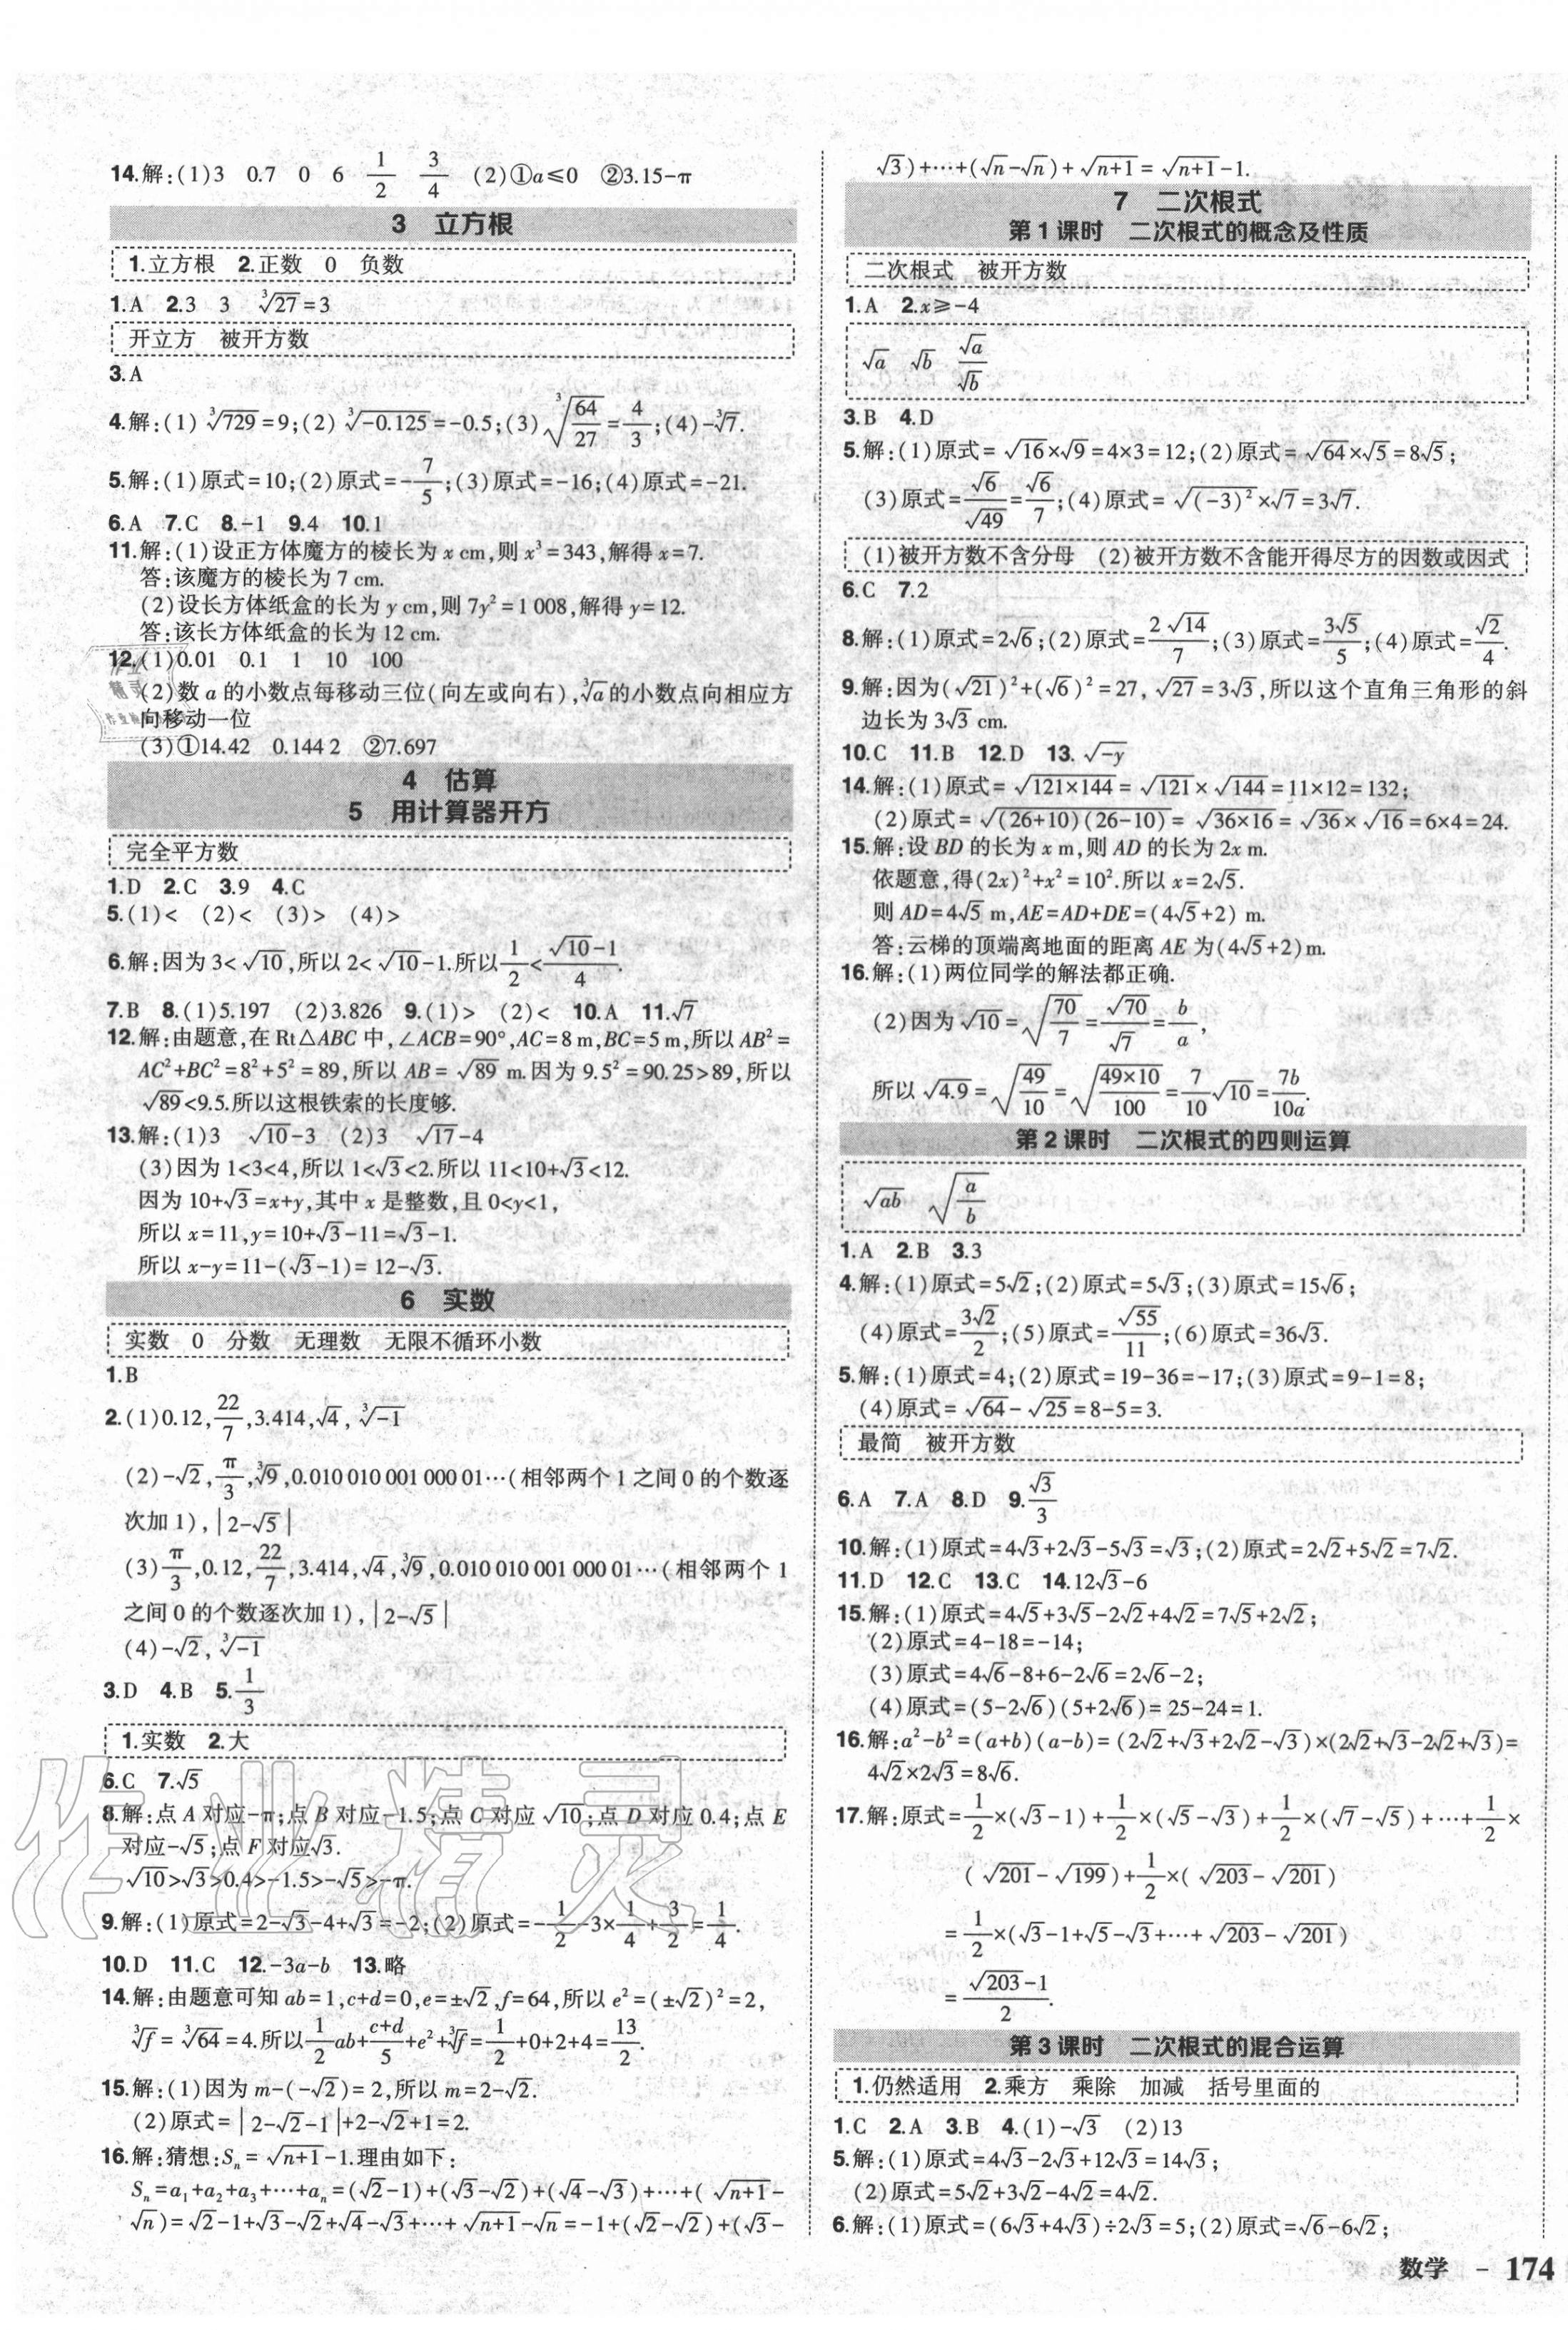 14.解:(1)3 0.7 0 6 1/2 3/4 (2)①a≤0 ②3.15-π
3 立方根
1.立方根 2.正数 0 负数
1.A 2.3 3 ∛27=3
开立方 被开方数
3.A
4.解:(1)∛729=9;(2)∛-0.125=-0.5;(3)∛(64/27)=4/3;(4)-∛7.
5.解:(1)原式=10;(2)原式=-7/5;(3)原式=-16;(4)原式=-21.
6.A 7.C 8.-1 9.4 10.1
11.解:(1)设正方体魔方的棱长为x cm,则x³=343,解得x=7.
答:该魔方的棱长为7 cm.
(2)设长方体纸盒的长为y cm,则7y²=1 008,解得y=12.
答:该长方体纸盒的长为12 cm.
12.(1)0.01 0.1 1 10 100
(2)数a的小数点每移动三位(向左或向右),∛a的小数点向相应方
向移动一位
(3)①14.42 0.144 2 ②7.697
4 估算
5 用计算器开方
完全平方数
1.D 2.C 3.9 4.C
5.(1)< (2)< (3)> (4)>
6.解:因为3<√10,所以2<√10-1.所以1/2<(√10-1)/4.
7.B 8.(1)5.197 (2)3.826 9.(1)> (2)< 10.A 11.√7
12.解:由题意,在Rt△ABC中,∠ACB=90°,AC=8 m,BC=5 m,所以AB²=
AC²+BC²=8²+5²=89,所以AB=√89 m.因为9.5²=90.25>89,所以
√89<9.5.所以这根铁索的长度够.
13.解:(1)3 √10-3 (2)3 √17-4
(3)因为1<3<4,所以1<√3<2.所以11<10+√3<12.
因为10+√3=x+y,其中x是整数,且0<y<1,
所以x=11,y=10+√3-11=√3-1.
所以x-y=11-(√3-1)=12-√3.
6 实数
实数 0 分数 无理数 无限不循环小数
1.B
2.(1)0.12,22/7,3.414,√4,∛-1
(2)-√2,π/3,∛9,0.010 010 001 000 01…(相邻两个1之间0的个数逐
次加1),|2-√5|
(3)π/3,0.12,22/7,3.414,√4,∛9,0.010 010 001 000 01…(相邻两个1
之间0的个数逐次加1),|2-√5|
(4)-√2,∛-1
3.D 4.B 5.1/3
1.实数 2.大
6.C 7.√5
8.解:点A对应-π;点B对应-1.5;点C对应√10;点D对应0.4;点E
对应-√5;点F对应√3.
√10>√3>0.4>-1.5>-√5>-π.
9.解:(1)原式=2-√3-4+√3=-2;(2)原式=-1/2-3×1/4+3/2=1/4.
10.D 11.C 12.-3a-b 13.略
14.解:由题意可知ab=1,c+d=0,e=±√2,f=64,所以e²=(±√2)²=2,
∛f=∛64=4.所以1/2ab+(c+d)/5+e²+∛f=1/2+0+2+4=13/2.
15.解:(1)因为m-(-√2)=2,所以m=2-√2.
(2)原式=|2-√2-1|+2-√2+1=2.
16.解:猜想:Sₙ=√(n+1)-1.理由如下:
Sₙ=a₁+a₂+a₃+…+aₙ=(√2-1)+(√3-√2)+(√4-√3)+…+(√(n+1)-
√n)=√2-1+√3-√2+√4-√3+…+√(n+1)-√n=-1+(√2-√2)+(√3-
√3)+…+(√n-√n)+√(n+1)=√(n+1)-1.
7 二次根式
第1课时 二次根式的概念及性质
二次根式 被开方数
1.A 2.x≥-4
√a √b √a/√b
3.B 4.D
5.解:(1)原式=√16×√9=4×3=12;(2)原式=√64×√5=8√5;
(3)原式=√6/√49=√6/7;(4)原式=√(-3)²×√7=3√7.
(1)被开方数不含分母 (2)被开方数不含能开得尽方的因数或因式
6.C 7.2
8.解:(1)原式=2√6;(2)原式=2√14/7;(3)原式=3√5/5;(4)原式=√2/4.
9.解:因为(√21)²+(√6)²=27,√27=3√3,所以这个直角三角形的斜
边长为3√3 cm.
10.C 11.B 12.D 13.√-y
14.解:(1)原式=√(121×144)=√121×√144=11×12=132;
(2)原式=√((26+10)(26-10))=√(36×16)=√36×√16=6×4=24.
15.解:设BD的长为x m,则AD的长为2x m.
依题意,得(2x)²+x²=10².所以x=2√5.
则AD=4√5 m,AE=AD+DE=(4√5+2) m.
答:云梯的顶端离地面的距离AE为(4√5+2)m.
16.解:(1)两位同学的解法都正确.
(2)因为√10=√(70/7)=√70/√7=b/a,
所以√4.9=√(49/10)=√(49×10/100)=7/10√10=7b/10a.
第2课时 二次根式的四则运算
√ab √(a/b)
1.A 2.B 3.3
4.解:(1)原式=5√2;(2)原式=5√3;(3)原式=15√6;
(4)原式=3√2/2;(5)原式=√55/11;(6)原式=36√3.
5.解:(1)原式=4;(2)原式=19-36=-17;(3)原式=9-1=8;
(4)原式=√64-√25=8-5=3.
最简 被开方数
6.A 7.A 8.D 9.√3/3
10.解:(1)原式=4√3+2√3-5√3=√3;(2)原式=2√2+5√2=7√2.
11.D 12.C 13.C 14.12√3-6
15.解:(1)原式=4√5+3√5-2√2+4√2=7√5+2√2;
(2)原式=4-18=-14;
(3)原式=4√6-8+6-2√6=2√6-2;
(4)原式=(5-2√6)(5+2√6)=25-24=1.
16.解:a²-b²=(a+b)(a-b)=(2√2+√3+2√2-√3)×(2√2+√3-2√2+√3)=
4√2×2√3=8√6.
17.解:原式=1/2×(√3-1)+1/2×(√5-√3)+1/2×(√7-√5)+…+1/2×
(√201-√199)+1/2×(√203-√201)
=1/2×(√3-1+√5-√3+…+√203-√201)
=(√203-1)/2.
第3课时 二次根式的混合运算
1.仍然适用 2.乘方 乘除 加减 括号里面的
1.C 2.A 3.B 4.(1)-√3 (2)13
5.解:(1)原式=4√3-2√3+12√3=14√3;
(2)原式=5√2+3√2-4√2=4√2.
6.解:(1)原式=(6√3+4√3)÷2√3=5;(2)原式=√6-6√2;
数学 - 174
作业精灵